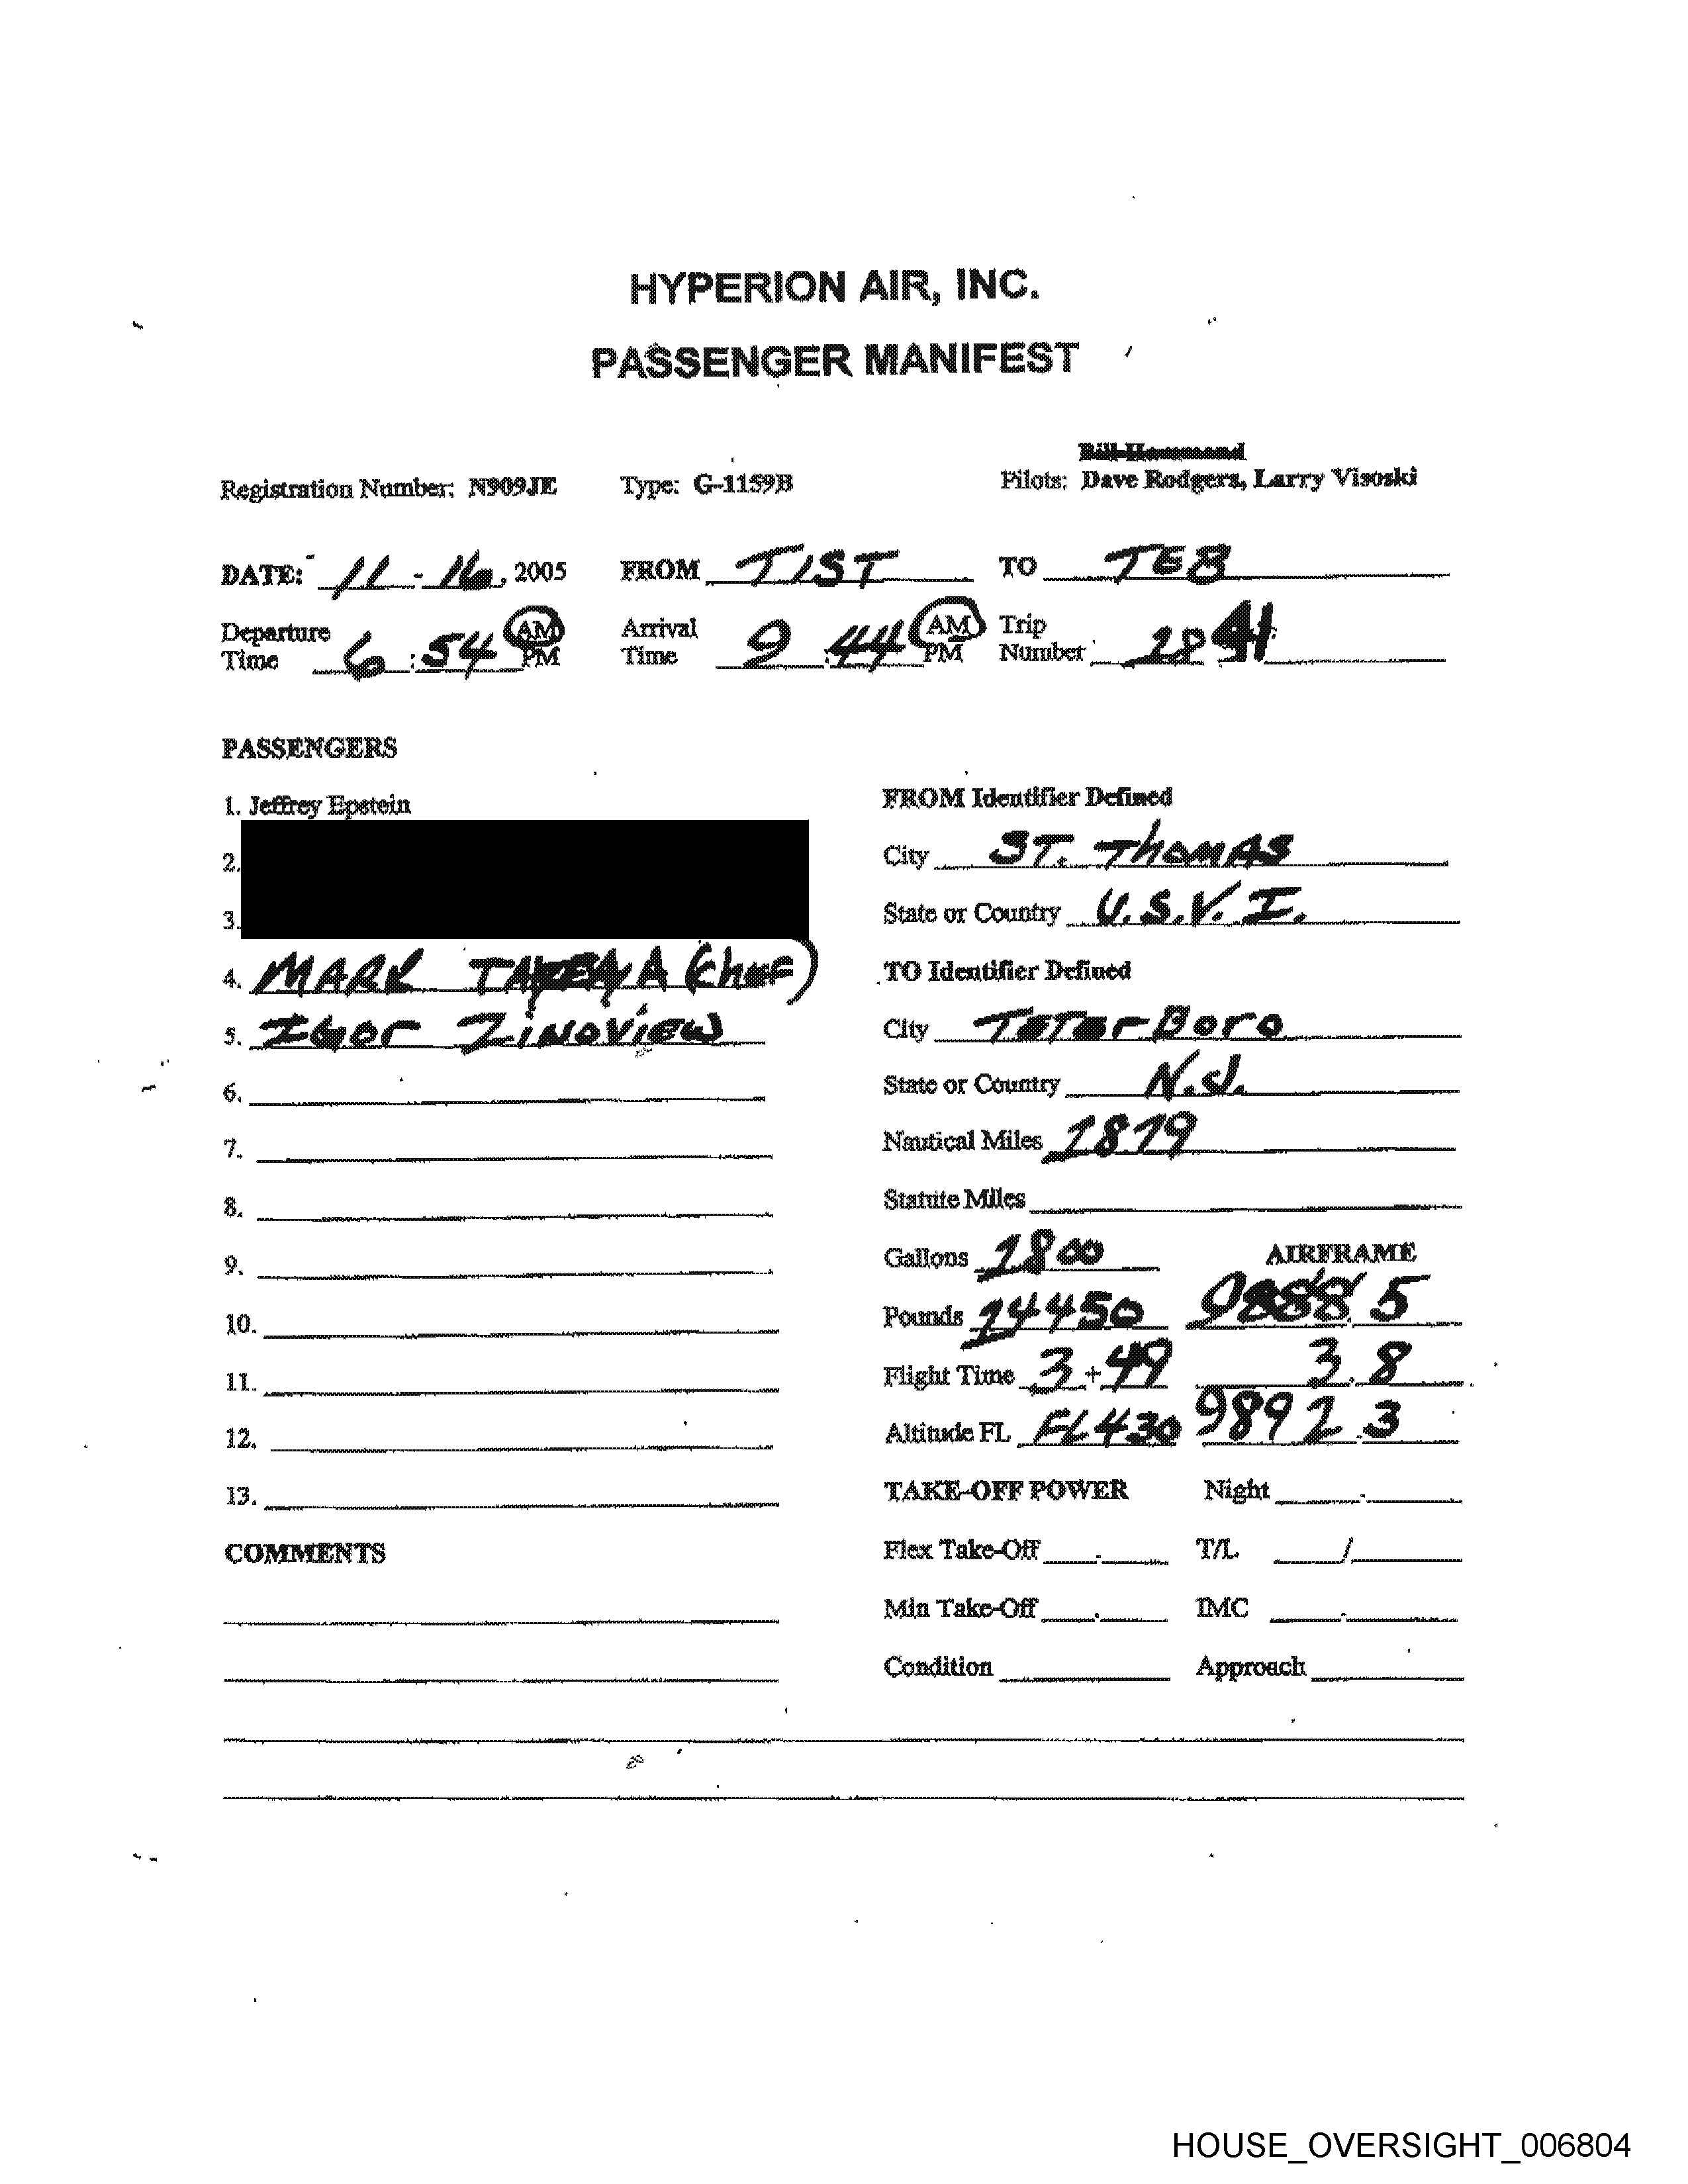 HYPERION AIR, INC.
PASSENGER MANIFEST
Registration Number: N909JE Type: G-1159B Pilots: Dave Rodgers, Larry Visoski
DATE: 11 - 16, 2005 FROM TIST TO TEB
Departure Time 6:54 AM PM Arrival Time 9:44 AM PM Trip Number 28
PASSENGERS
1. Jeffrey Epstein
2.
3.
4. MARK (Chef)
5. IGOR ZINOVIEW
6.
7.
8.
9.
10.
11.
12.
13.
COMMENTS
FROM Identifier Defined
City ST. THOMAS
State or Country U.S.V.I.
TO Identifier Defined
City TETERBORO
State or Country N.J.
Nautical Miles
Statute Miles
Gallons 1800 AIRFRAME
Pounds 14450 9888.5
Flight Time 3+49 3.8
Altitude FL FL430 9892.3
TAKE-OFF POWER Night
Flex Take-Off T/L /
Min Take-Off IMC
Condition Approach
HOUSE_OVERSIGHT_006804